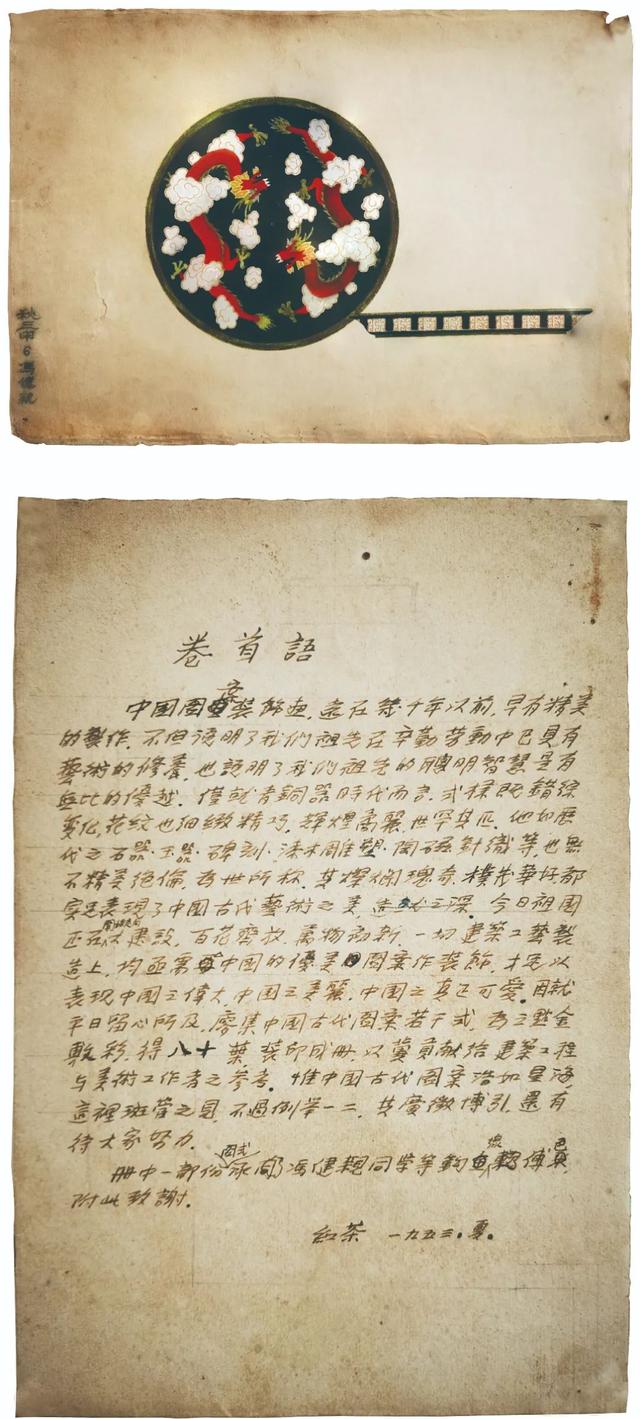 秋三甲6馮健親
卷首語
中国圖案装飾画,遠在幾千年以前,早有精美
的製作,不但說明了我們祖先在辛勤劳動中已具有
藝術的修養,也說明了我們祖先的聰明智慧是有
無比的優越.僅就青銅器時代而言,式樣既錯綜
變化,花紋也細緻精巧,輝煌富麗,世罕其匹.他如歷
代之石器、玉器、碑刻、漆木雕塑、陶磁針織等,也無
不精美絕倫,為世所称,其燦爛瑰奇,樸茂華好,都
实足表現了中國古代藝術之美,今日祖國
正在建設,百花齊放,萬物向新,一切建築工藝製
造上,均亟需中國的優美圖案作装飾,才足以
表現中國之偉大,中國之美麗,中國之真正可愛.因就
平日留心所及,廖集中國古代圖案若干式,為之塗金
敷彩,得八十葉,装印成冊,以冀貢献給建築工程
与美術工作者之参考.惟中國古代圖案浩如星海,
這裡斑管之見,不過例举一二,其廣徵博引,還有
待大家努力.
冊中一部份圖式承馮健親同学等鈎傅色,
附此致謝.
紅茶 一九五三.夏.